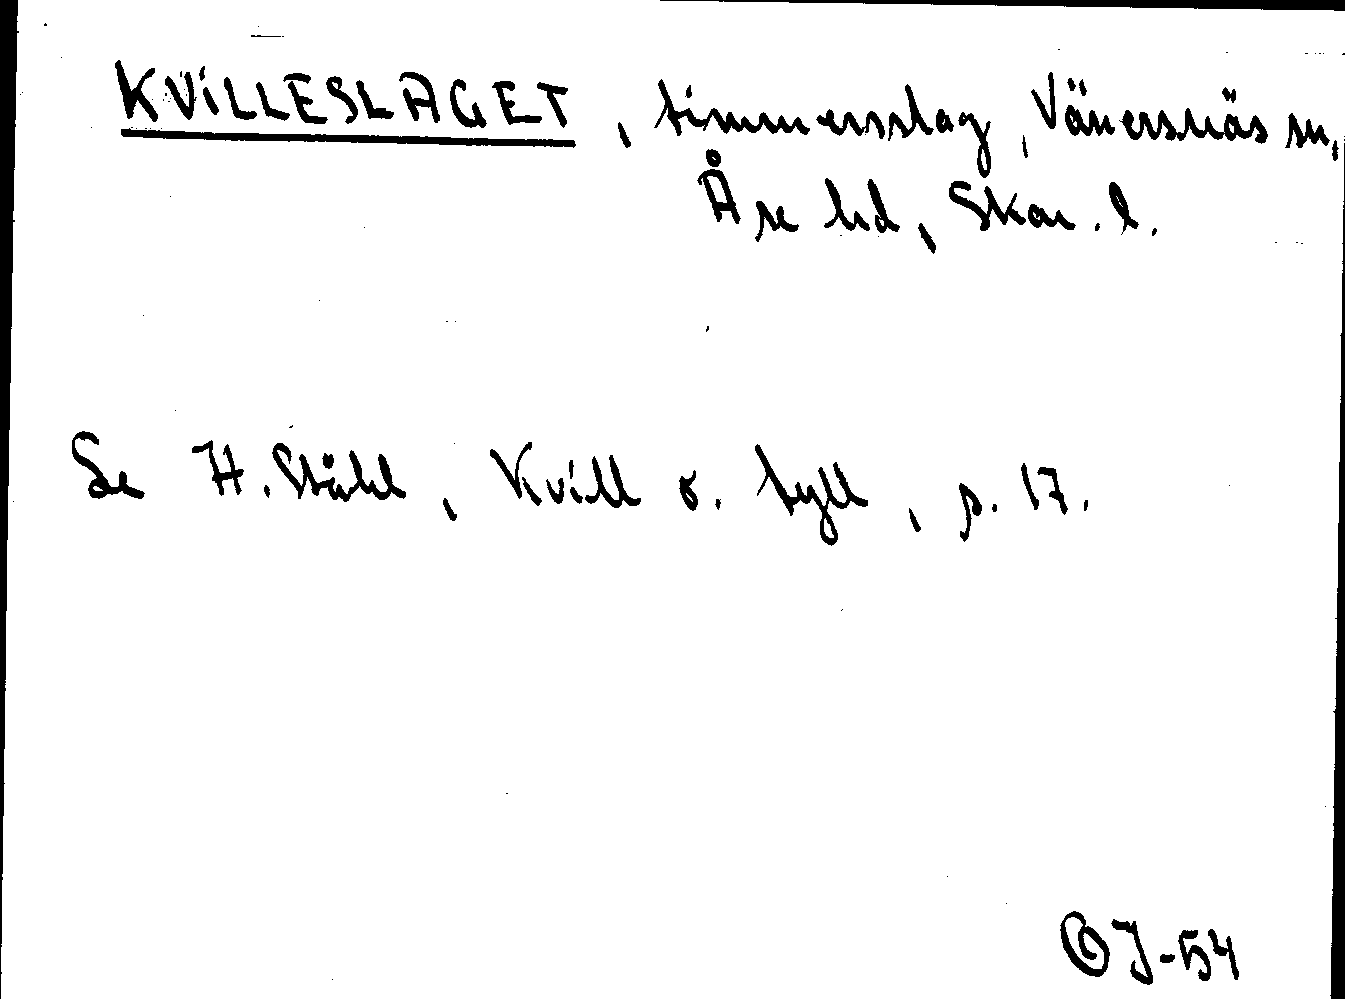 KVILLESLAGET, timmersslag, Vänersnäs sn,
Åse hd, Skar. l.
Se H. Ståhl, Kvill o. tyll, p. 17.
OJ-54